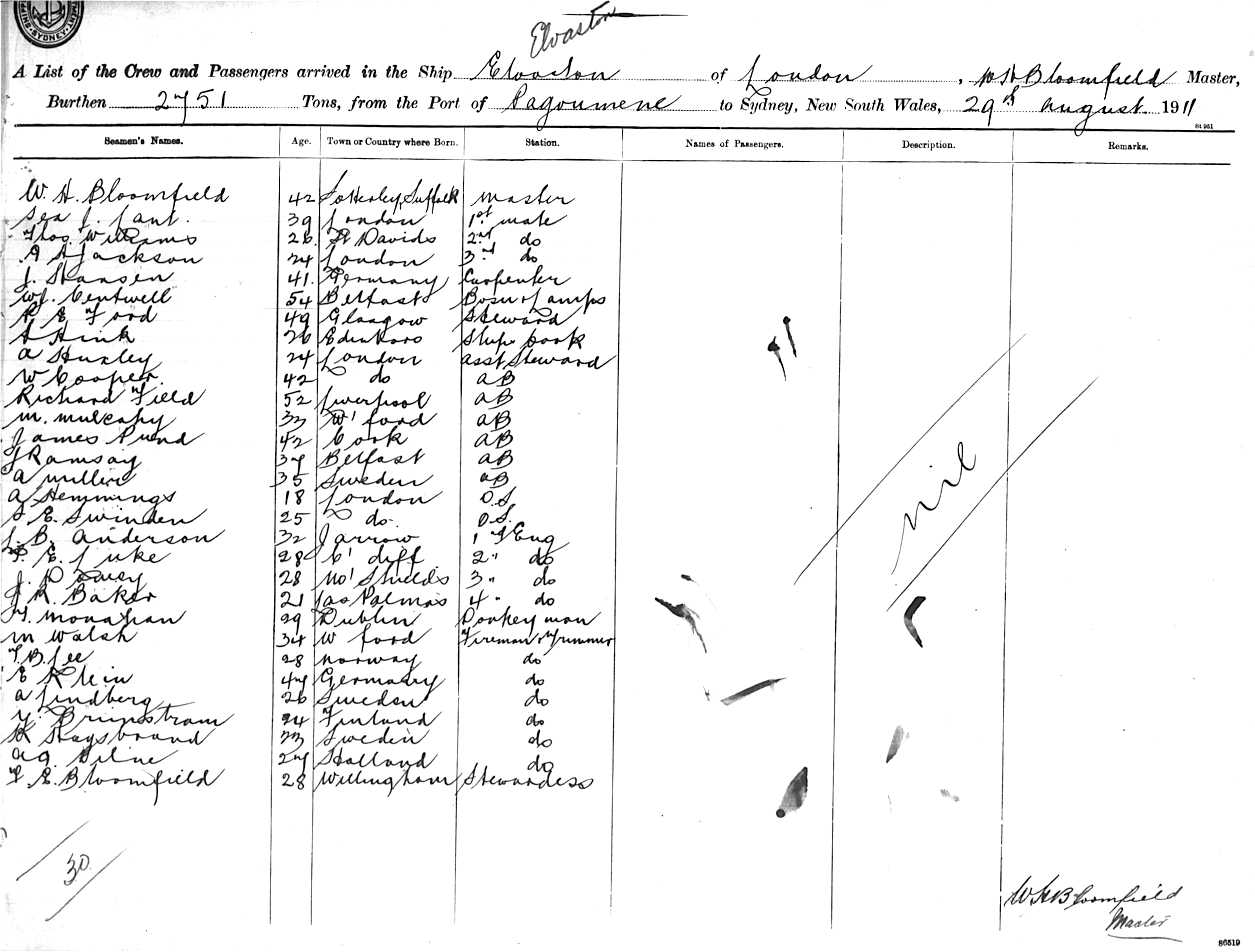 Elvaston
A List of the Crew and Passengers arrived in the Ship Elvaston of London, W H Bloomfield Master,
Burthen 2751 Tons, from the Port of Pagoumene to Sydney, New South Wales, 29th August 1911
Seamen's Names. Age. Town or Country where Born. Station. Names of Passengers. Description. Remarks.
W. H. Bloomfield 42 Sotterley, Suffolk Master
Geo J. Cant. 39 London 1st mate
Thos. Williams 26. St Davids 2nd do
A H Jackson 24 London 3rd do
J. Hansen 41. Germany Carpenter
Wj. Centwell 54 Belfast Bosun & Lamps
R E Ford 49 Glasgow Steward
A Hink 26 Edinboro Ships Cook
A Huxley 24 London asst Steward
W Cooper. 42 do AB
Richard Field 52 Liverpool AB
M. Mulcahy 33 W'ford AB
James Pund 42 Cork AB
J Ramsay 37 Belfast AB
A 35 Sweden AB
A Hemmings 18 London O.S.
S. E. Swinden 25 do. O.S.
J. B. Anderson 32 Jarrow 1st Eng
E. Luke 28 C'diff 2" do
J. D 28 No' Shields 3" do
J R. Baker 21 Las Palmas 4" do
T. Monaghan 29 Dublin Donkeyman
M Walsh 34 W ford Fireman & Trimmer
T. B. Lee 28 Norway do
E Klein 47 Germany do
A Lindberg 26 Sweden do
Y. 24 Finland do
K 33 Sweden do
A G. 27 Holland do
F. E. Bloomfield 28 Willingham Stewardess
nil
30
W H Bloomfield
Master
86519